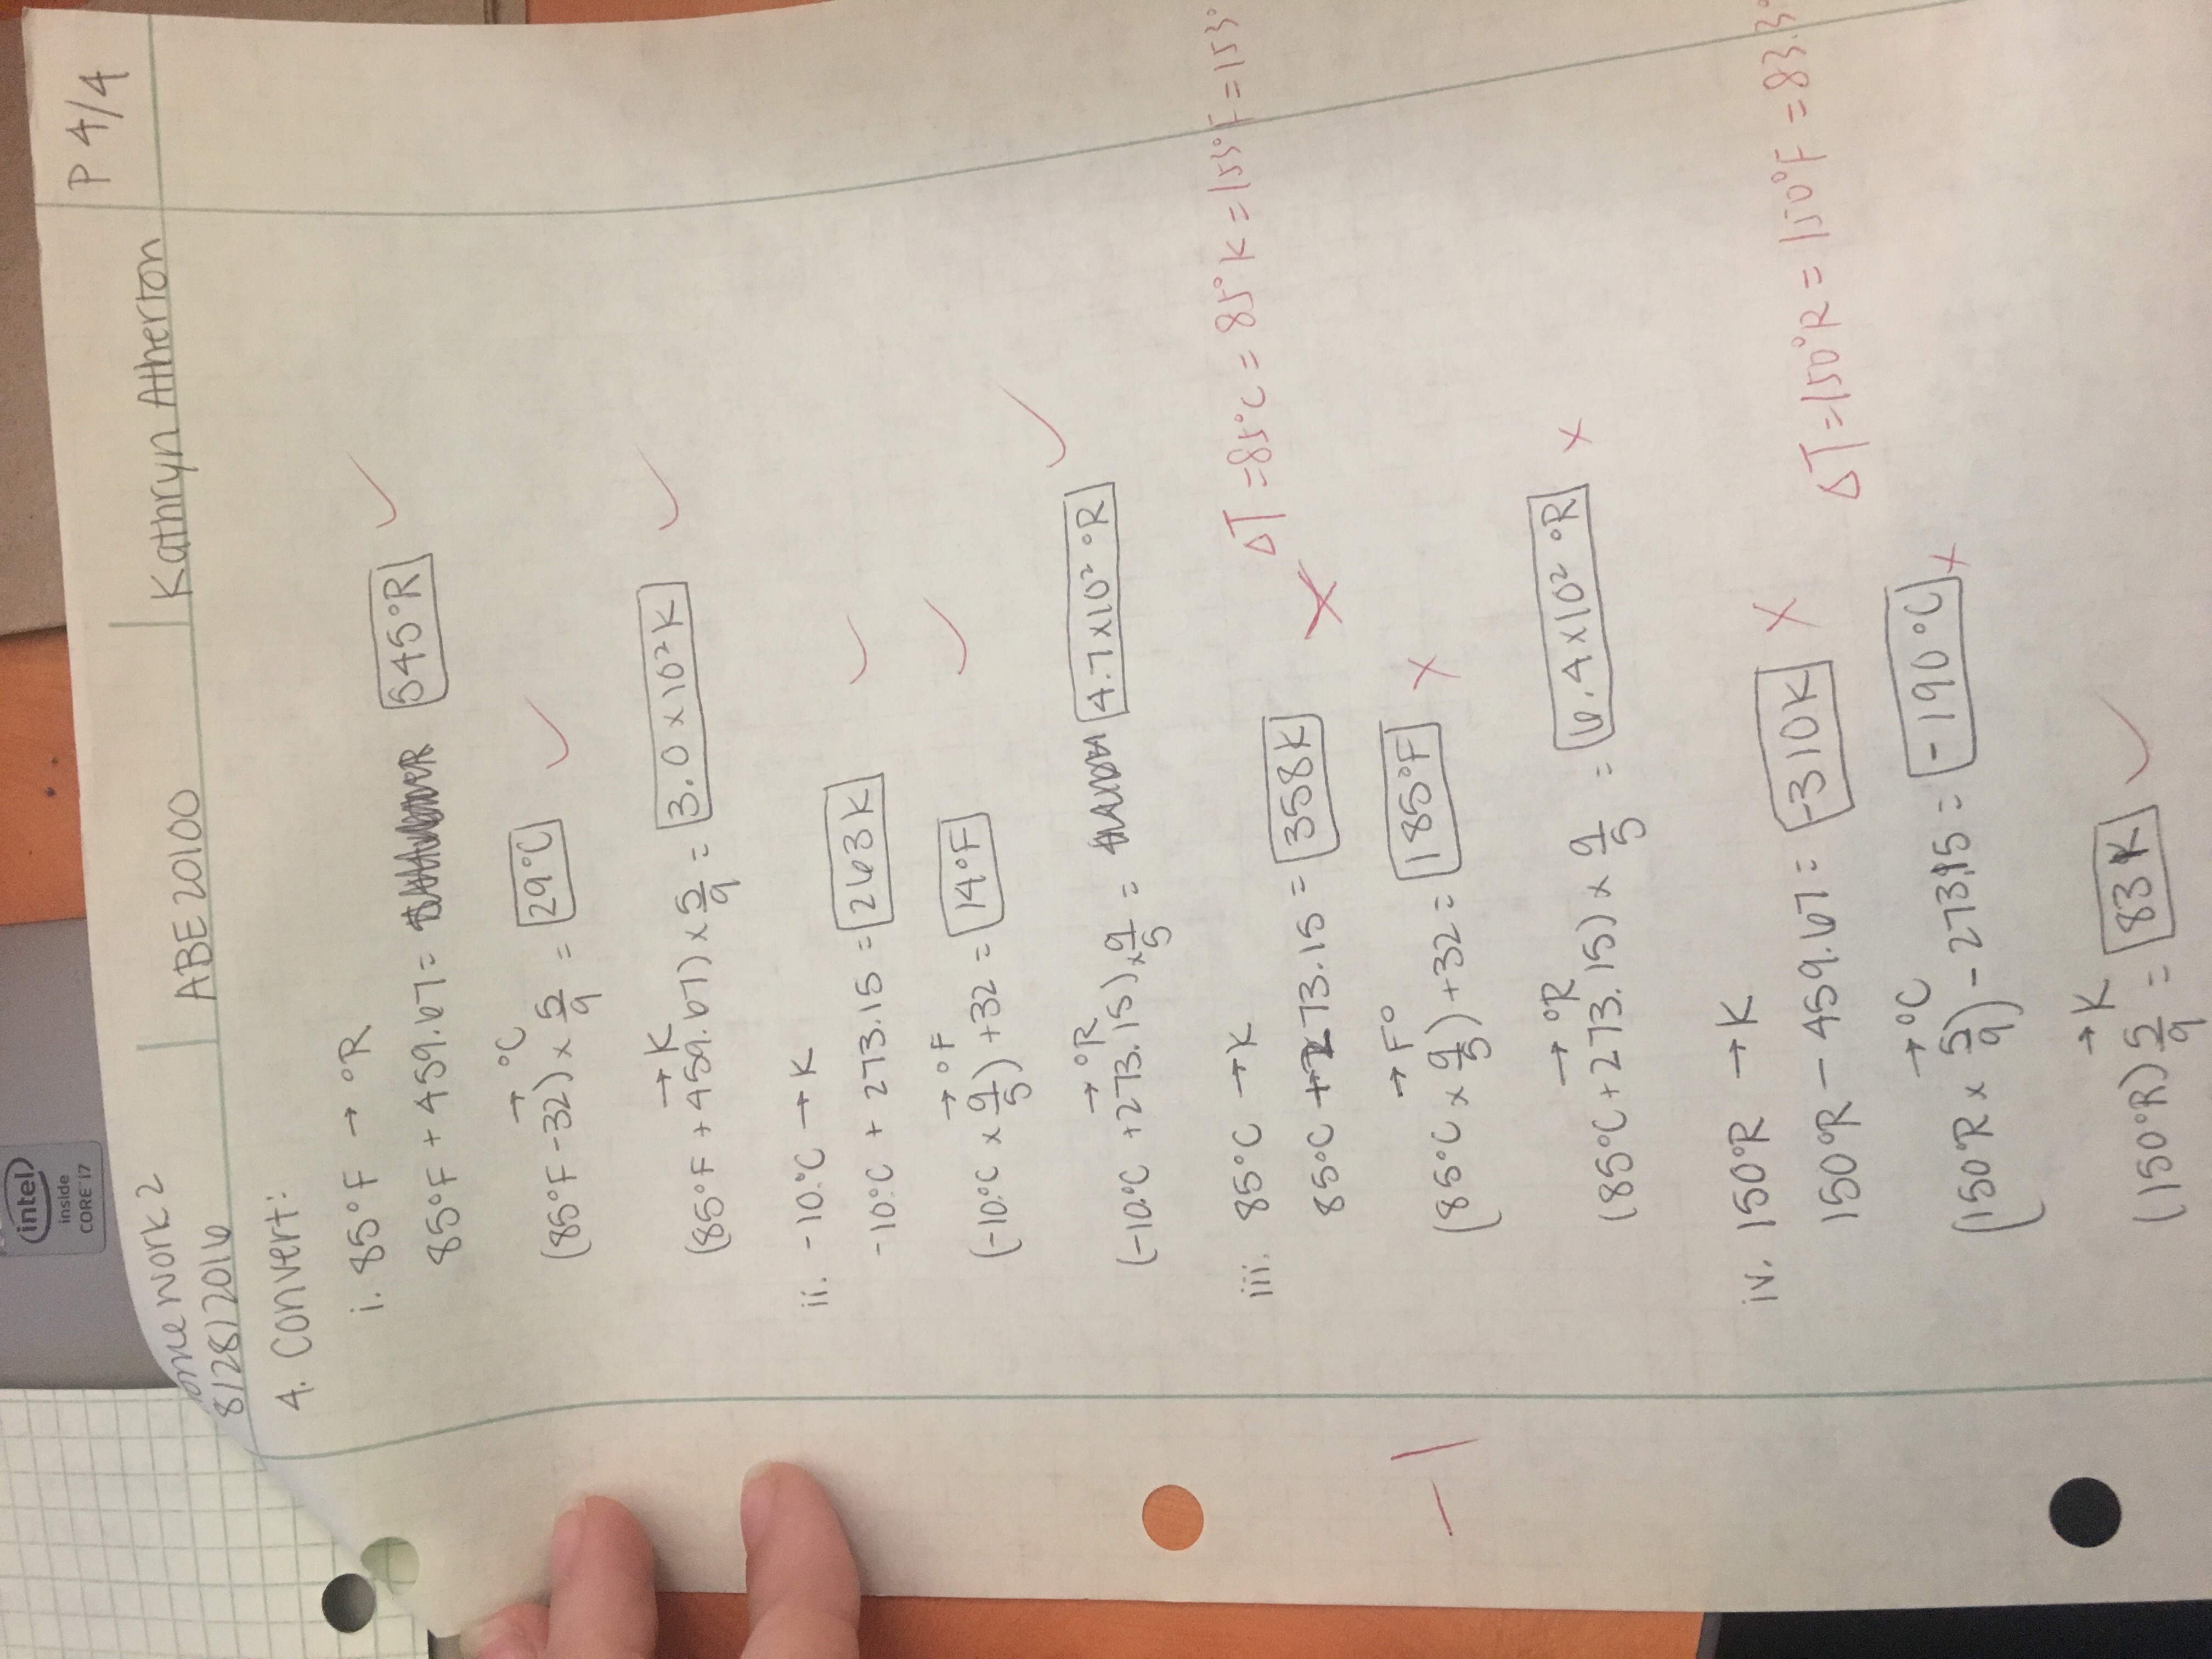 intel
inside
CORE i7
P 4/4
omework 2
8/28/2016
ABE 20100
Kathryn Atherton
4. Convert:
i. 85°F → °R
85°F + 459.67 = 545°R ✓
→ °C
(85°F - 32) × 5/9 = 29°C ✓
→ K
(85°F + 459.67) × 5/9 = 3.0 × 10² K ✓
ii. -10.°C → K
-10.°C + 273.15 = 263K ✓
→ °F
(-10.°C × 9/5) + 32 = 14°F ✓
→ °R
(-10.°C + 273.15) × 9/5 = 4.7 × 10² °R ✓
iii. 85°C → K
ΔT = 85°C = 85°K = 153°F = 153°
85°C + 273.15 = 358K ×
→ F°
-1
(85°C × 9/5) + 32 = 185°F ×
→ °R
(85°C + 273.15) × 9/5 = 6.4 × 10² °R ×
iv. 150°R → K
150°R - 459.67 = -310K ×
ΔT = 150°R = 150°F = 83.3°
→ °C
(150°R × 5/9) - 273.15 = -190°C ×
→ K
(150°R) 5/9 = 83K ✓